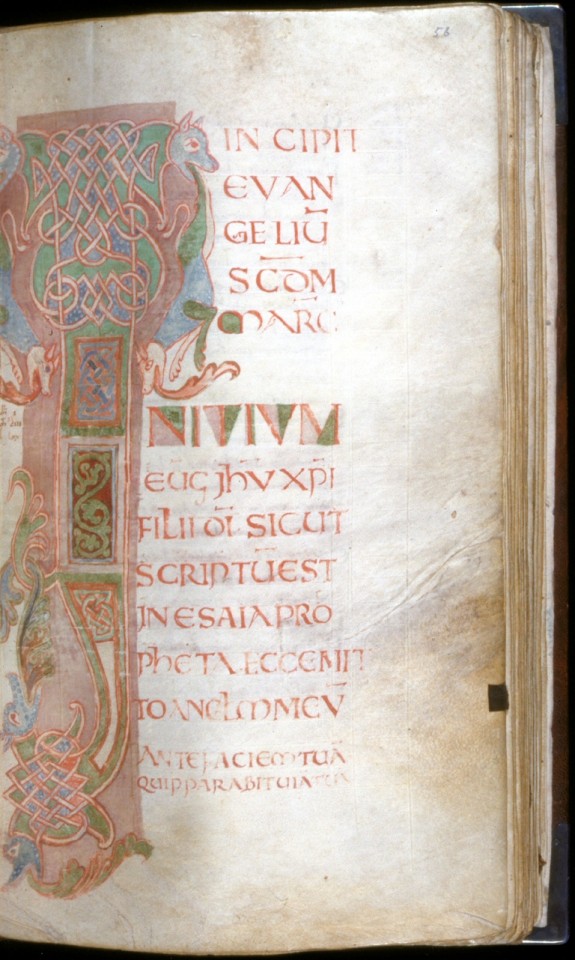 56
IN CIPIT
EVAN
GELIŪ
SCD̄M
MARC̄
INITIUM
EUG̅ JHŪ XP̅I
FILII DI̅ SICUT
SCRIPTŪ EST
IN ESAIA PRO
PHETA ECCE MIT
TO ANGLM̅ MEŪ
ANTE FACIEM TUĀ
QUI P̱PARABIT UIĀ TUĀ